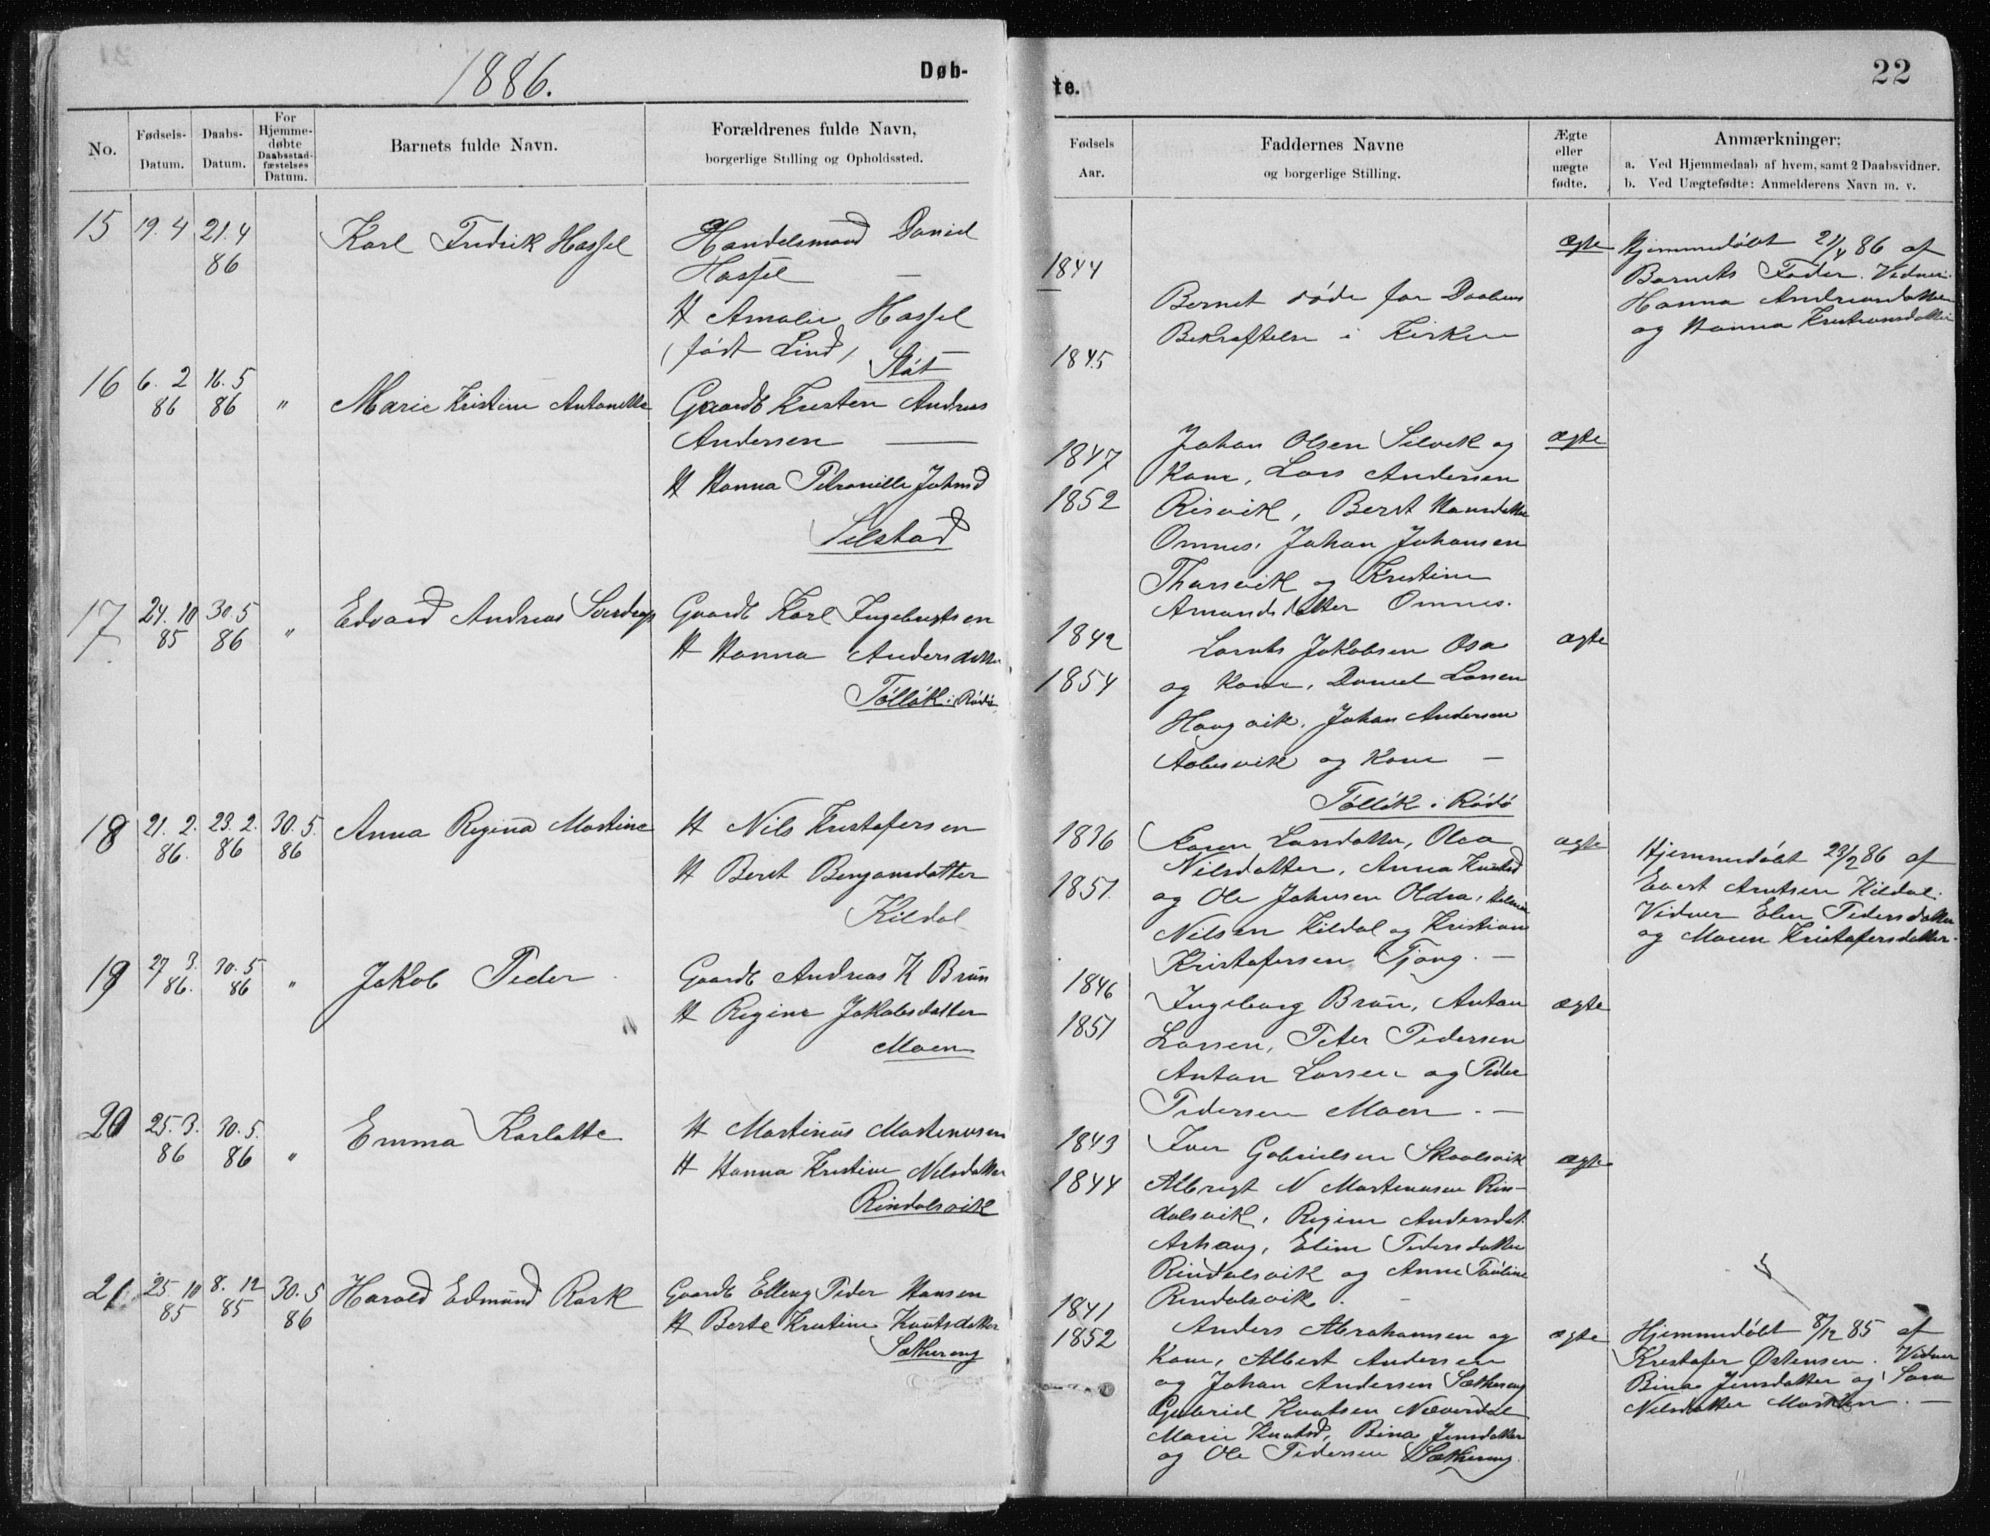 1886.
Døb-
No.
Fødsels-
Datum.
Daabs-
Datum.
For
Hjemme-
døbte
Daabsstad-
fæstelses
Datum.
Barnets fulde Navn.
Forældrenes fulde Navn,
borgerlige Stilling og Opholdssted.
15 19.4 21.4 Karl Fredrik Hassel Handelsmand Daniel
86 Hassel —
H Amalie Hassel
(født Lind)
Støt
16 6.2 16.5 " Marie Kristine Antonette Gaardb Kristen Andreas
86 86 Andersen —
H Hanna Petronille Johnsd
Selstad
17 24.10 30.5 " Edvard Andreas Sverdrup Gaardb Karl Ingebrigtsen
85 86 H Hanna Andersdatter
Tølløk i Rødø
18 21.2. 23.2. 30.5. Anna Regina Martine H Nils Kristofersen
86. 86 86 H Beret Benjamsdatter
Kildal
19 27.3. 30.5 " Jakob Peder Gaardb Andreas K Brun
86. 86 H Regine Jakobsdatter
Moen
20 25.3. 30.5. " Emma Karlotte H Martinus Martenusen
86 86 H Hanna Kristine Nilsdatter
Rindalsvik
21. 25.10 8.12 30.5 Harald Edmund Rask Gaardb Elling Peder Hansen
85 85 86 H Berte Kristine Knutsdatter
Sæthereng
te.
22
Fødsels
Aar.
Faddernes Navne
og borgerlige Stilling.
Ægte
eller
uægte
fødte.
Anmærkninger;
a. Ved Hjemmedaab af hvem, samt 2 Daabsvidner.
b. Ved Uægtefødte: Anmelderens Navn m. v.
1844
1845
Barnet døde før Daabens
Bekræftelse i Kirken
ægte
Hjemmedøbt 21/4 86 af
Barnets Fader. Vidner
Hanna Andreasdatter
og Hanna Kristiansdatter
1847
1852
Johan Olsen Selvik og
Kone, Lars Andersen
Risvik, Beret Hansdatter
Omnes, Johan Johansen
Tharsvik og Kristine
Amundsdatter Omnes.
ægte
1842
1854
Lornts Jakobsen Osa
og Kone, Daniel Larsen
Haugvik, Johan Andersen
Aabesvik og Kone —
Tølløk i Rødø
ægte
1836
1851.
Karen Larsdatter, Olea
Nilsdatter, Anna Knutsd
og Ole Johnsen Oldra,
Nilsen Kildal og Kristian
Kristofersen Tjong. —
ægte
Hjemmedøbt 23/2 86 af
Evert Arntsen Kildal.
Vidner Elen Pedersdatter
og Maren Kristofersdatter.
1846
1851
Ingeborg Brun, Anton
Larsen, Peter Pedersen
Anton Larsen og Peder
Pedersen Moen. —
ægte
1843
1844
Iver Gabrielsen Skaalsvik
Albrigt N Martenusen Rin-
dalsvik, Regine Andersdat.
Arhaug, Eline Pedersdatter
Rindalsvik og Anne Pauline
Rindalsvik. —
ægte
1841
1852
Anders Abrahamsen og
Kone, Albert Andersen
og Johan Andersen Sæthereng
Gabriel Knutsen Næverdal
Marie Knutsd, Bina Jensdatter
og Ole Pedersen Sæthereng.
ægte
Hjemmedøbt 8/12 85 af
Kristofer Østensen. Vidner
Bina Jensdatter og Sara
Nilsdatter —